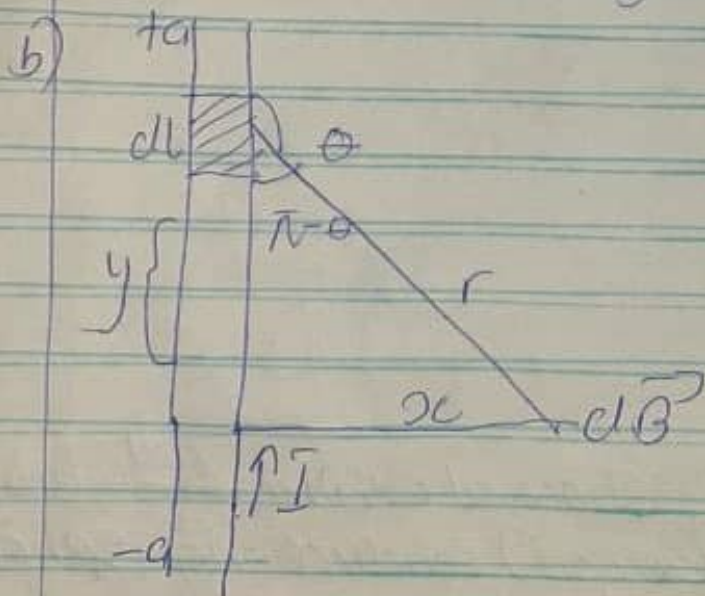 b)
+a
dl
θ
π-θ
y
r
x
dB⃗
↑I
-a